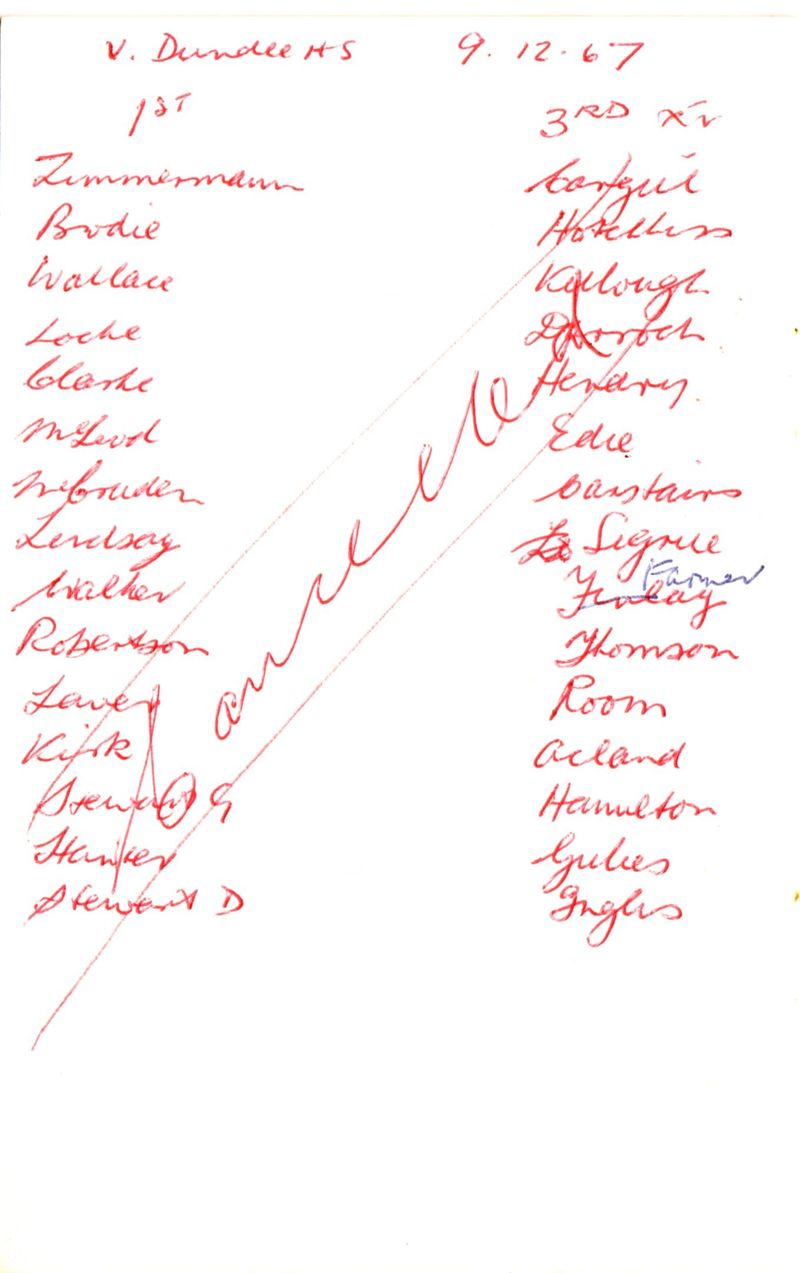 V. Dundee HS 9.12.67
1ST
Zimmermann
Brodie
Wallace
Locke
Clarke
McLeod
McCruden
Lindsay
Walker
Robertson
Laver
Kirk
Stewart G
Hanser
Stewart D
3RD XV
Cargill
Hotchkiss
Kellough
Darroch
Hendry
Edie
Carstairs
Segrue
Farmer
Finlay
Thomson
Room
Acland
Hamilton
Gillies
Inglis
Cancelled